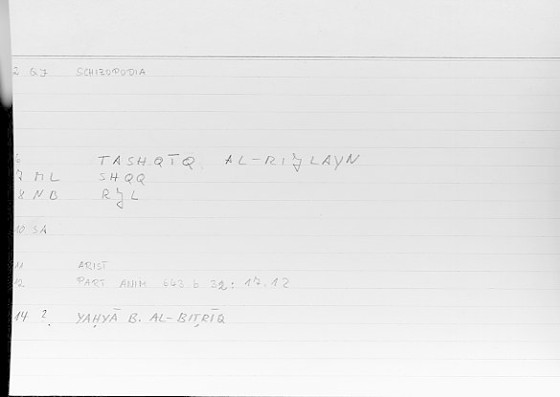 2 GJ SCHIZOPODIA
6 TASHQĪQ AL-RIǮLAYN
7 ML SHQQ
8 NB RǮL
10 SA
11 ARIST
12. PART. ANIM. 643 b 32: 17.12
14 ?. YAḤYĀ B. AL-BIṬRĪQ